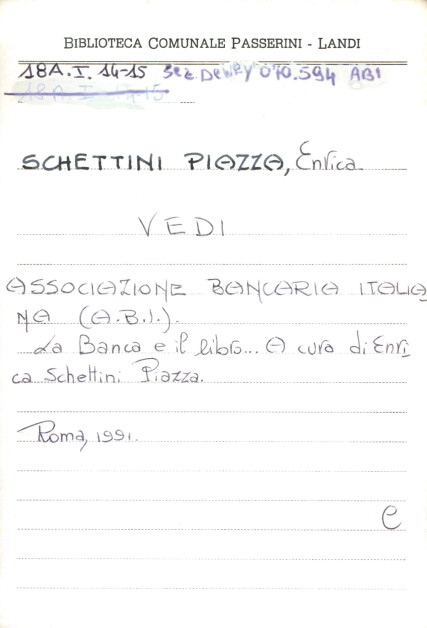 BIBLIOTECA COMUNALE PASSERINI - LANDI
18A.I. 14-15 Sez. DEWEY 070.594 ABI
18A.I. 14-15
SCHETTINI PIAZZA, Enrica
VEDI
ASSOCIAZIONE BANCARIA ITALIA
NA (A.B.I.).
La Banca e il libro... A cura di Enri
ca Schettini Piazza.
Roma, 1991.
e